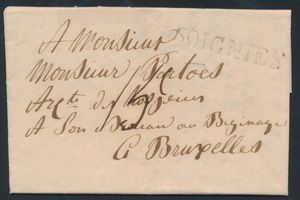 A Monsieur
SOIGNIES
Monsieur Partoes
A Son au Beguinage
A Bruxelles